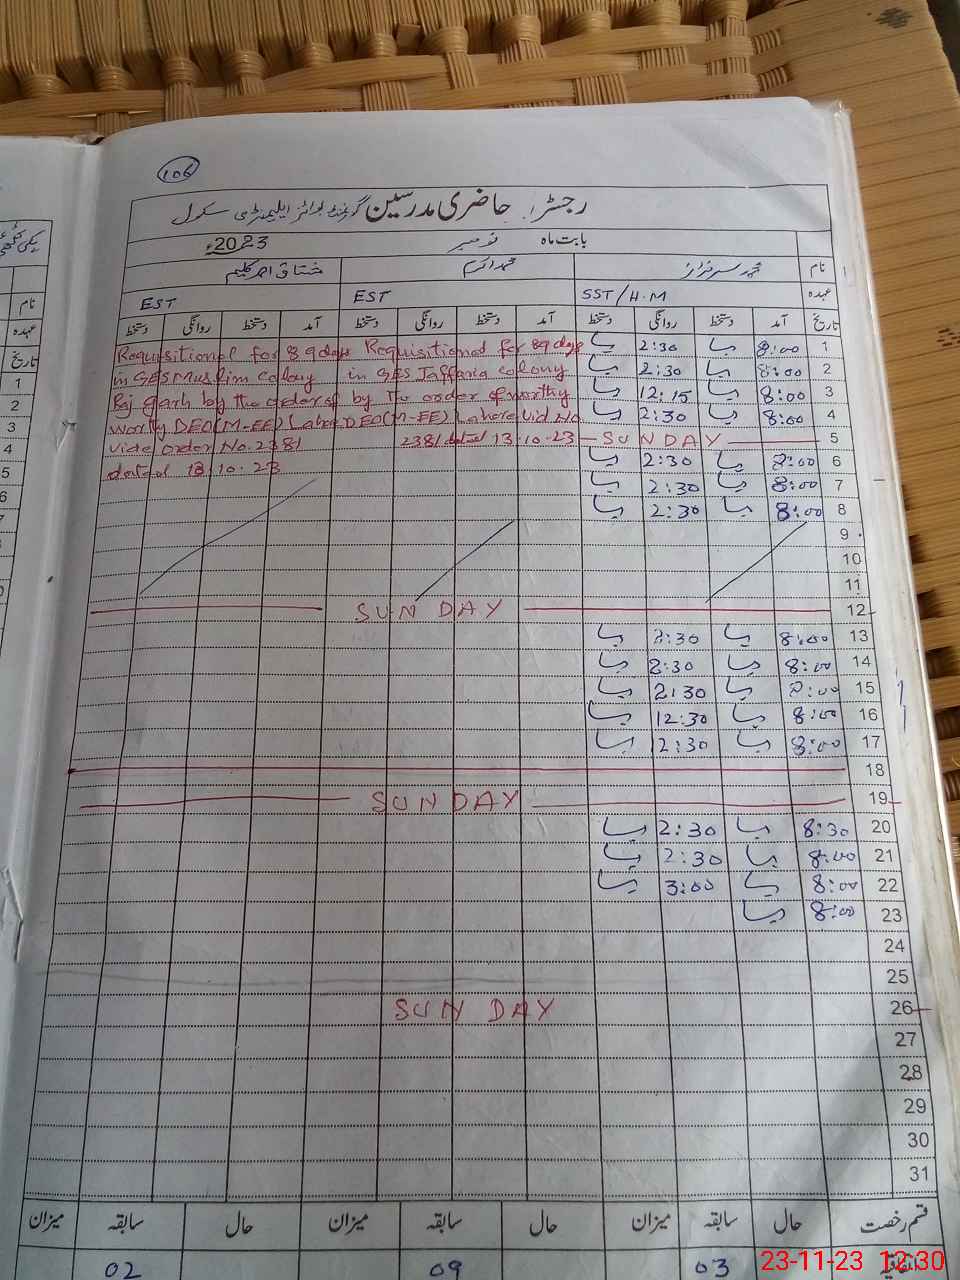 106
رجسٹر حاضری مدرسین گورنمنٹ بوائز ایلیمنٹری سکول
بابت ماہ نومبر 2023ء
نام محمد سرفراز محمد اکرم مشتاق احمد کلیم
عہدہ SST/H.M EST EST
تاریخ آمد دستخط روانگی دستخط آمد دستخط روانگی دستخط آمد دستخط روانگی دستخط
Requisitioned for 89 days
in GES Muslim Colony
Baj garh by the order of
worthy DEO (M-EE) Lahore
vide order No. 2381
dated 13.10.23
Requisitioned for 89 days
in GES Jaffaria colony
by The order of worthy
DEO (M-EE) Lahore Vid No
2381 dated 13.10.23
1 8:00 2:30
2 8:00 2:30
3 8:00 12:15
4 8:00 2:30
5 SUNDAY
6 8:00 2:30
7 8:00 2:30
8 8:00 2:30
9
10
11
12 SUNDAY
13 8:00 2:30
14 8:00 2:30
15 8:00 2:30
16 8:00 12:30
17 8:00 12:30
18
19 SUNDAY
20 8:30 2:30
21 8:00 2:30
22 8:00 3:00
23 8:00
24
25
26 SUNDAY
27
28
29
30
31
قسم رخصت حال سابقہ میزان حال سابقہ میزان حال سابقہ میزان
اتفاقیہ 03 09 02
23-11-23 12:30
نام
عہدہ
تاریخ
1
2
3
4
5
6
7